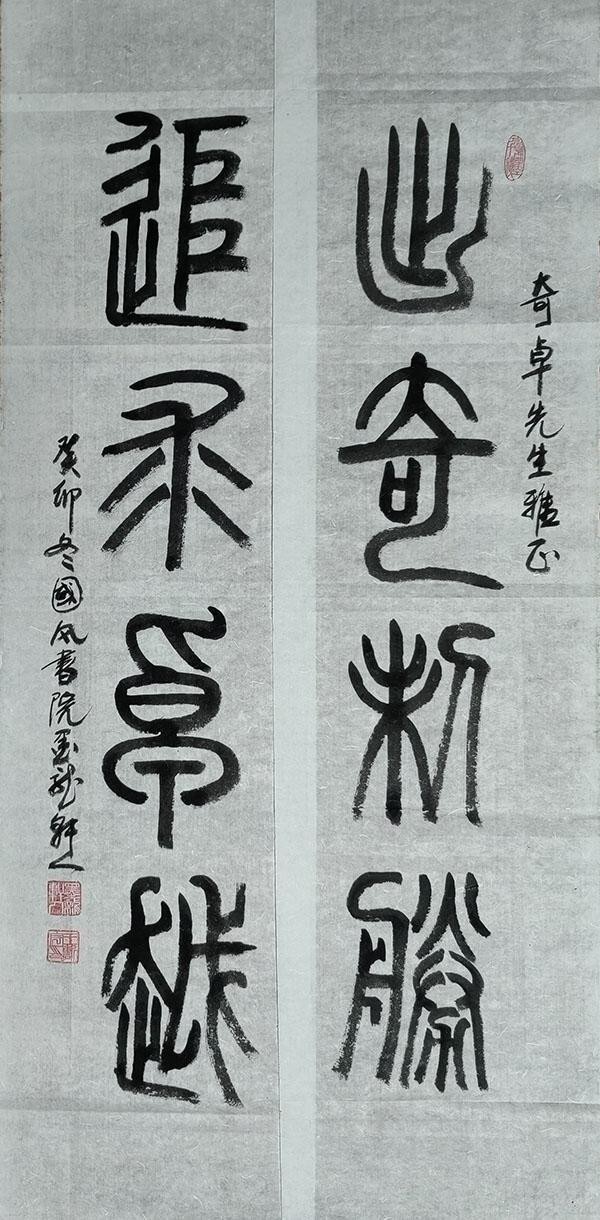 奇卓先生雅正
出奇制勝
追求卓越
癸卯冬國风書院龍軒人